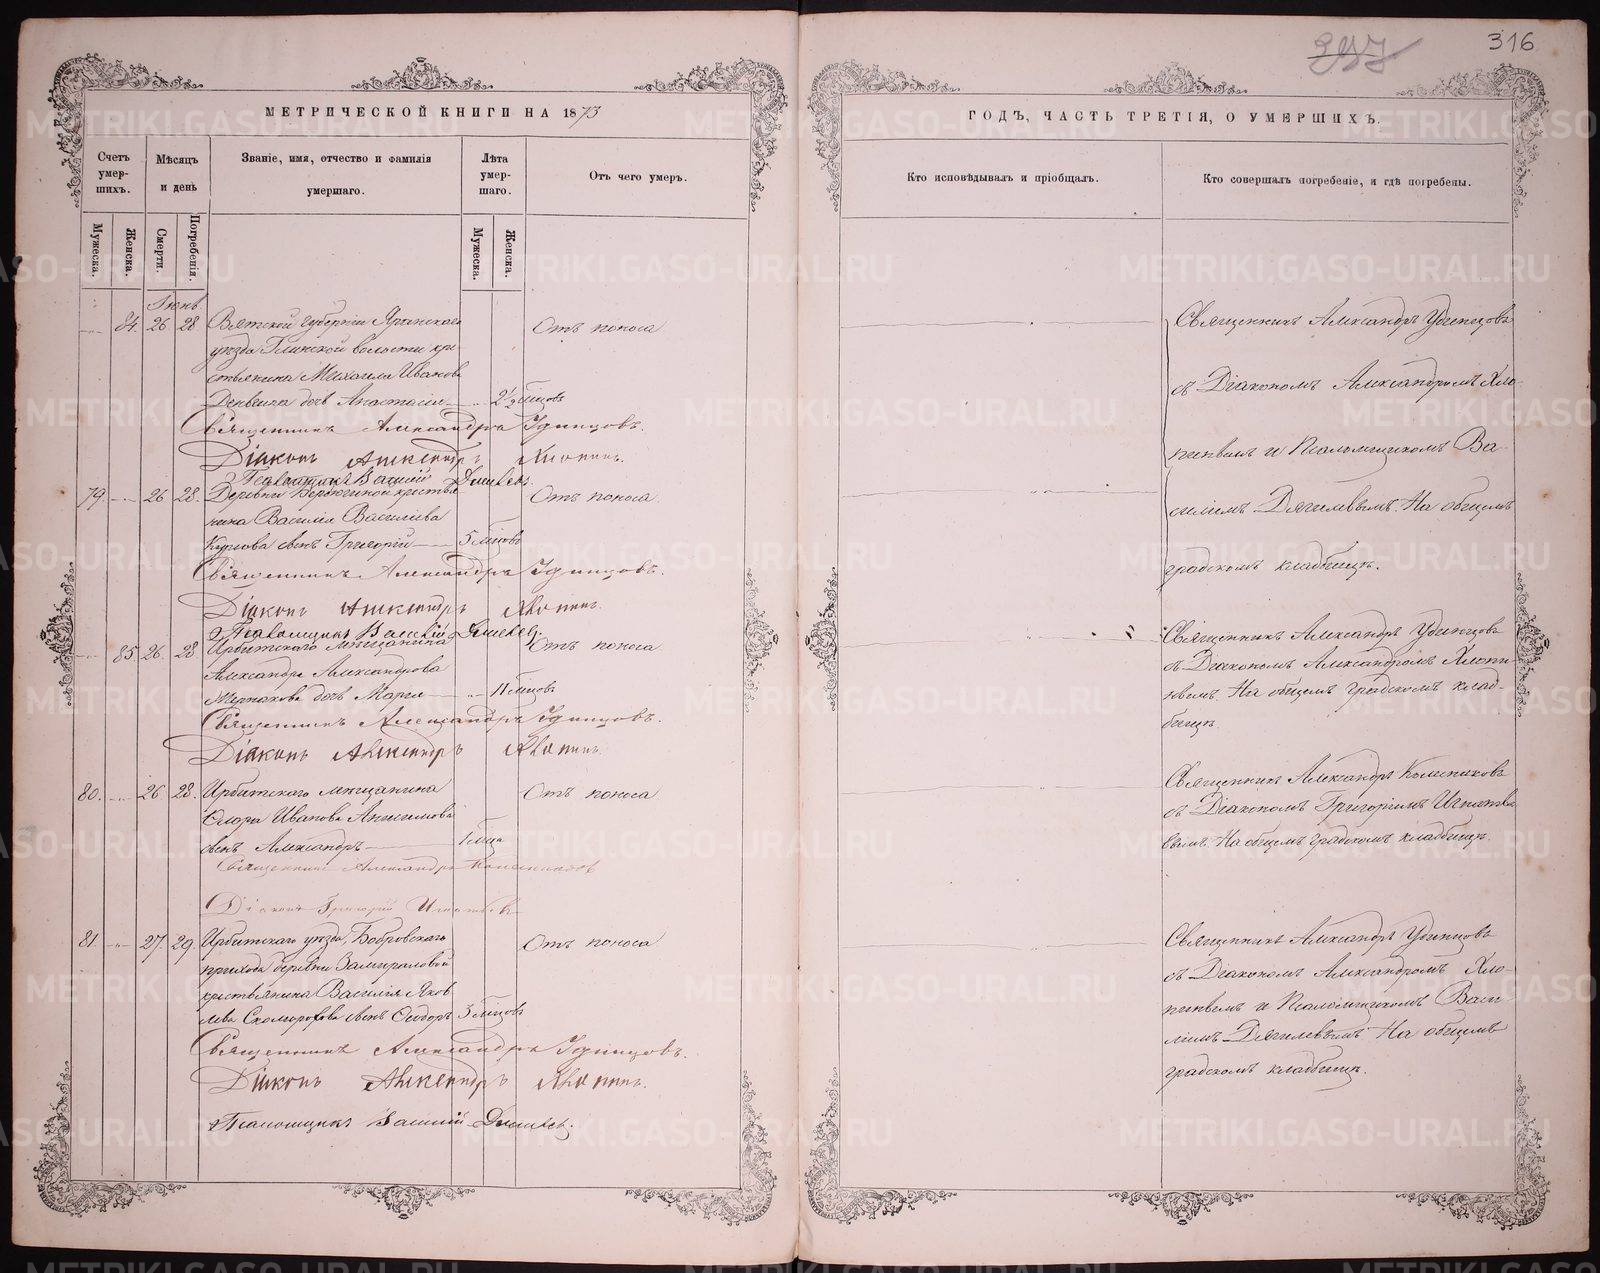 316
МЕТРИЧЕСКОЙ КНИГИ НА 1873
ГОДЪ, ЧАСТЬ ТРЕТІЯ, О УМЕРШИХЪ.
Счетъ умер-шихъ.
Мѣсяцъ и день
Званіе, имя, отчество и фамилія умершаго.
Лѣта умер-шаго.
Отъ чего умеръ.
Кто исповѣдывалъ и пріобщалъ.
Кто совершалъ погребеніе, и гдѣ погребены.
Мужеска.
Женска.
Смерти.
Погребенія.
Мужеска.
Женска.
84. 26 28 Вятской губерніи Яранскаго
уѣзда волости кре-
стьянина Михаила Иванова
дочь Анастасія 2½ мѣсцовъ
Отъ поноса
Священникъ Александръ Удинцовъ.
Діаконъ Александръ Хлопинъ.
Псаломщикъ Василій Дягилевъ.
79. 26 28. Деревни крестья
нина Василія Васильева
сынъ Григорій 5 мѣсцовъ
Отъ поноса
Священникъ Александръ Удинцовъ.
Діаконъ Александръ Хлопинъ.
Псаломщикъ Василій Дягилевъ.
85. 26. 28 Ирбитскаго мѣщанина
Александра Александрова
дочь Марія 11 мѣсцовъ
Отъ поноса
Священникъ Александръ Удинцовъ.
Діаконъ Александръ Хлопинъ.
80. 26 28. Ирбитскаго мѣщанина
Ивана
сынъ Александръ 1 мѣсца
Отъ поноса
Священникъ Александръ Колесниковъ
Діаконъ Григорій Игнатьевъ
81. 27. 29. Ирбитскаго уѣзда, Бобровскаго
прихода деревни
крестьянина Василія Яков
лева Скоморохова сынъ Ѳеодоръ 3 мѣсцовъ
Отъ поноса
Священникъ Александръ Удинцовъ.
Діаконъ Александръ Хлопинъ.
Псаломщикъ Василій Дягилевъ.
Священникъ Александръ Удинцовъ
съ Діакономъ Александромъ Хло-
пинымъ и Псаломщикомъ Ва-
силіемъ Дягилевымъ. На общемъ
градскомъ кладбищѣ.
Священникъ Александръ Удинцовъ
съ Діакономъ Александромъ Хлопи-
нымъ На общемъ градскомъ клад-
бищѣ.
Священникъ Александръ Колесниковъ
съ Діакономъ Григоріемъ Игнатье
вымъ. На общемъ градскомъ кладбищѣ.
Священникъ Александръ Удинцовъ
съ Діакономъ Александромъ Хло-
пинымъ и Псаломщикомъ Васи-
ліемъ Дягилевымъ На общемъ
градскомъ кладбищѣ.